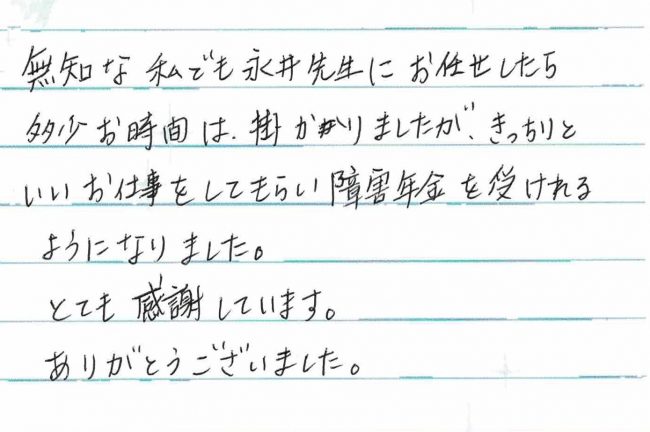 無知な私でも永井先生にお任せしたら
多少お時間は、掛かかりましたが、きっちりと
いいお仕事をしてもらい障害年金を受けれる
ようになりました。
とても感謝しています。
ありがとうございました。